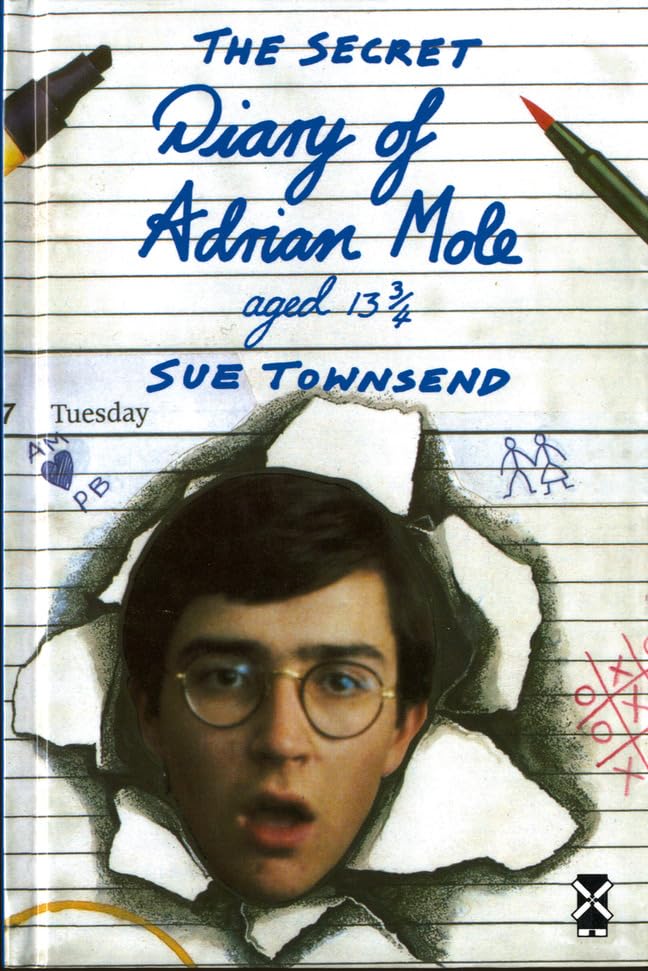 THE SECRET
Diary of
Adrian Mole
aged 13 3/4
SUE TOWNSEND
7 Tuesday
AM
PB